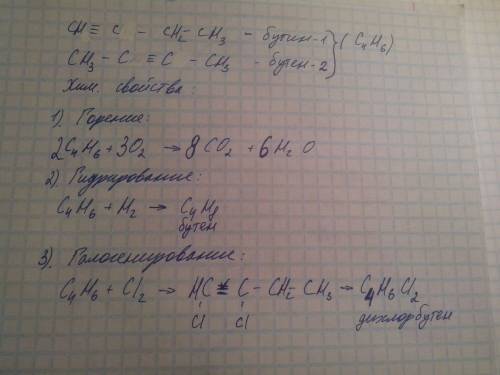 CH≡C - CH₂ - CH₃ - бутин-1 } (C₄H₆)
CH₃ - C ≡ C - CH₃ - бутен-2
Хим. свойства:
1). Горение:
2C₄H₆ + 3O₂ → 8CO₂ + 6H₂O
2) Гидрирование:
C₄H₆ + H₂ → C₄H₈
бутен
3). Галогенирование:
C₄H₆ + Cl₂ → HC = C - CH₂ - CH₃ → C₄H₆Cl₂
Cl Cl дихлорбутен